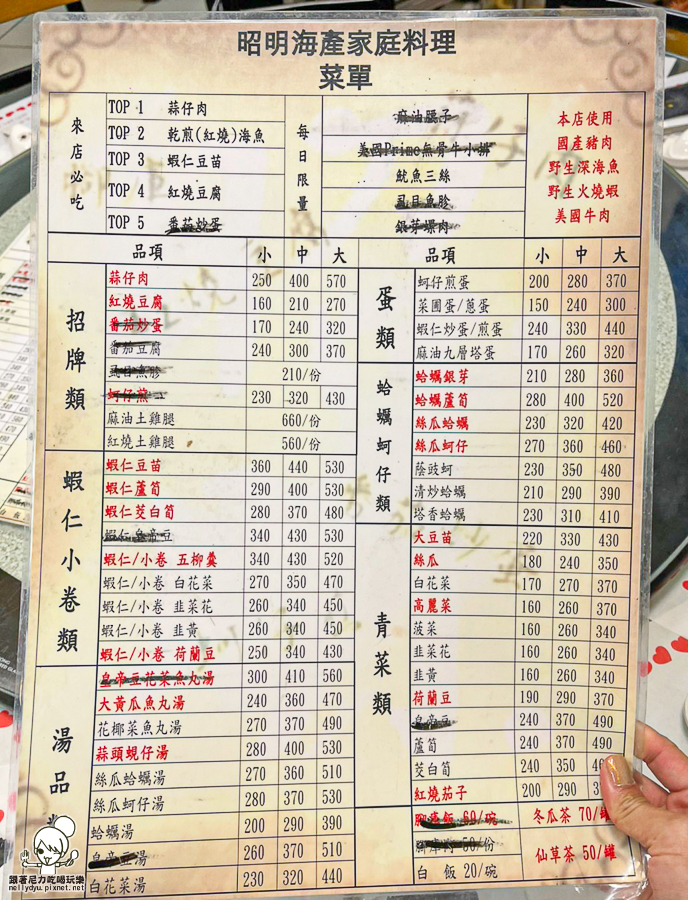 昭明海產家庭料理
菜單
來店必吃
TOP 1 蒜仔肉
TOP 2 乾煎(紅燒)海魚
TOP 3 蝦仁豆苗
TOP 4 紅燒豆腐
TOP 5 番茄炒蛋
每日限量
麻油腰子
美國Prime無骨牛小排
魷魚三絲
虱目魚肚
銀芽螺肉
本店使用
國產豬肉
野生深海魚
野生火燒蝦
美國牛肉
品項 小 中 大
招牌類
蒜仔肉 250 400 570
紅燒豆腐 160 210 270
番茄炒蛋 170 240 320
番茄豆腐 240 300 370
虱目魚肚 210/份
蚵仔煎 230 320 430
麻油土雞腿 660/份
紅燒土雞腿 560/份
蝦仁小卷類
蝦仁豆苗 360 440 530
蝦仁蘆筍 290 400 530
蝦仁茭白筍 280 370 480
蝦仁皇帝豆 340 430 530
蝦仁/小卷 五柳羹 340 430 520
蝦仁/小卷 白花菜 270 350 470
蝦仁/小卷 韭菜花 260 340 450
蝦仁/小卷 韭黃 260 340 450
蝦仁/小卷 荷蘭豆 250 340 430
湯品
皇帝豆花菜魚丸湯 300 410 560
大黃瓜魚丸湯 240 360 470
花椰菜魚丸湯 270 370 490
蒜頭蜆仔湯 280 400 530
絲瓜蛤蠣湯 270 360 510
絲瓜蚵仔湯 280 370 530
蛤蠣湯 200 290 390
皇帝豆湯 260 370 510
白花菜湯 230 320 440
品項 小 中 大
蛋類
蚵仔煎蛋 200 280 370
菜圃蛋/蔥蛋 150 240 300
蝦仁炒蛋/煎蛋 240 330 440
麻油九層塔蛋 170 260 320
蛤蠣蚵仔類
蛤蠣銀芽 210 280 360
蛤蠣蘆筍 280 400 520
絲瓜蛤蠣 230 320 420
絲瓜蚵仔 270 360 460
蔭豉蚵 230 350 480
清炒蛤蠣 210 290 390
塔香蛤蠣 230 310 410
青菜類
大豆苗 220 330 430
絲瓜 180 240 350
白花菜 170 270 370
高麗菜 160 260 370
菠菜 160 260 340
韭菜花 160 260 340
韭黃 160 260 340
荷蘭豆 190 290 370
皇帝豆 240 370 490
蘆筍 240 370 490
茭白筍 240 350
紅燒茄子 200 290
60/碗
50/份
白 飯 20/碗
冬瓜茶 70/罐
仙草茶 50/罐
跟著尼力吃喝玩樂
nellydyu.pixnet.net